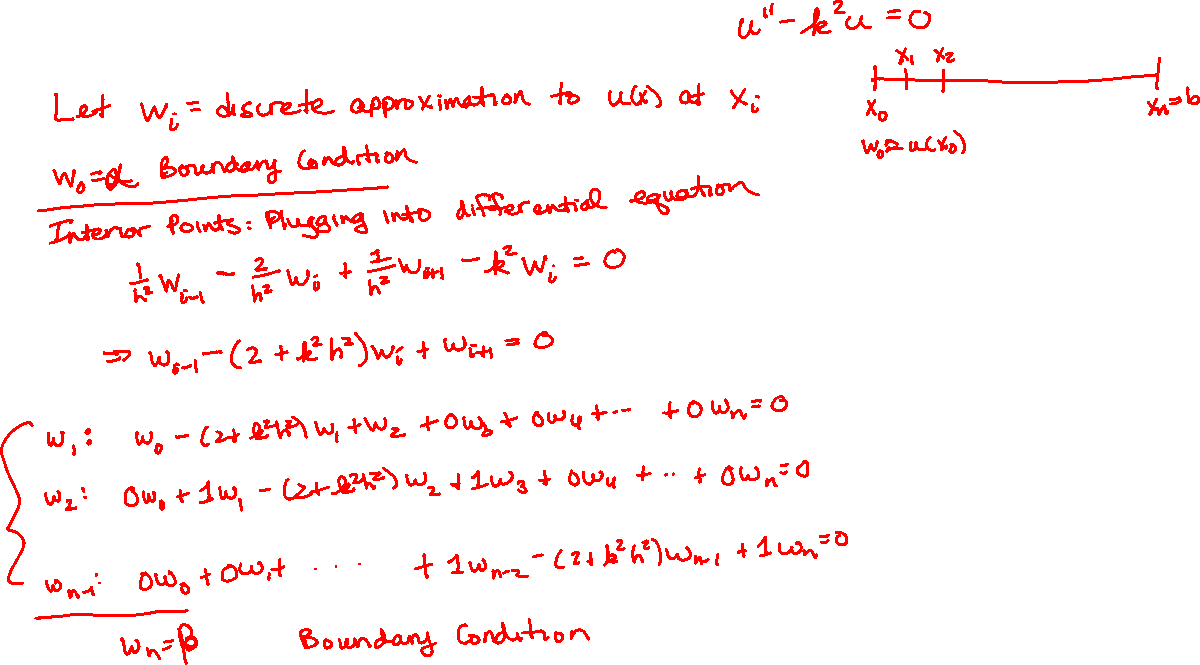 u'' - k²u = 0
x₁ x₂
x₀ xₙ = b
w₀ ≈ u(x₀)
Let wᵢ = discrete approximation to u(x) at xᵢ
w₀ = α Boundary Condition
Interior Points: Plugging into differential equation
1/h² wᵢ₋₁ - 2/h² wᵢ + 1/h² wᵢ₊₁ - k² wᵢ = 0
⇒ wᵢ₋₁ - (2 + k²h²)wᵢ + wᵢ₊₁ = 0
w₁: w₀ - (2 + k²h²)w₁ + w₂ + 0w₃ + 0w₄ + ··· + 0wₙ = 0
w₂: 0w₀ + 1w₁ - (2 + k²h²)w₂ + 1w₃ + 0w₄ + ·· + 0wₙ = 0
wₙ₋₁: 0w₀ + 0w₁ + · · · · + 1wₙ₋₂ - (2 + k²h²)wₙ₋₁ + 1wₙ = 0
wₙ = β Boundary Condition